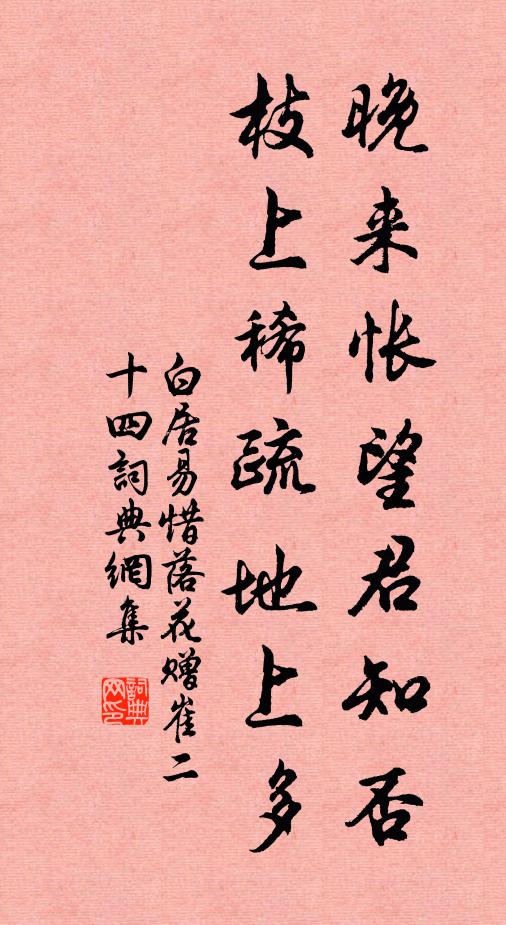 晚来怅望君知否
枝上稀疏地上多
白居易惜落花赠崔二
十四詞典網集
詞典
网印